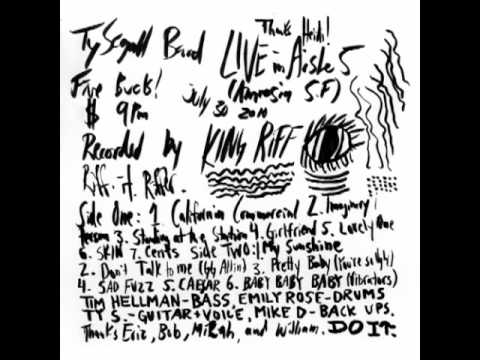 Ty Segall Band
Thanks Heidi!
LIVE in Aisle 5
Five Buck!
(Amnesia S.F)
$ 9pm
July 30 2010
Recorded by KING RIFF
Riff it
Side One: 1 California Commercial 2. Imaginary
Person 3. Standing at the Station 4. Girlfriend 5. Lovely One
6. SKIN 7. Cents Side TWO: 1. My Sunshine
2. Don't Talk to me (GG Allin) 3. Pretty Baby (You're so ugly)
4. SAD FUZZ 5. CAESAR 6. BABY BABY BABY (Vibrators)
TIM HELLMAN-BASS, EMILY ROSE-DRUMS
TY S.-GUITAR+VOICE, MIKE D-BACK UPS.
Thanks Eric, Bob, Mikah, and William. DO IT.